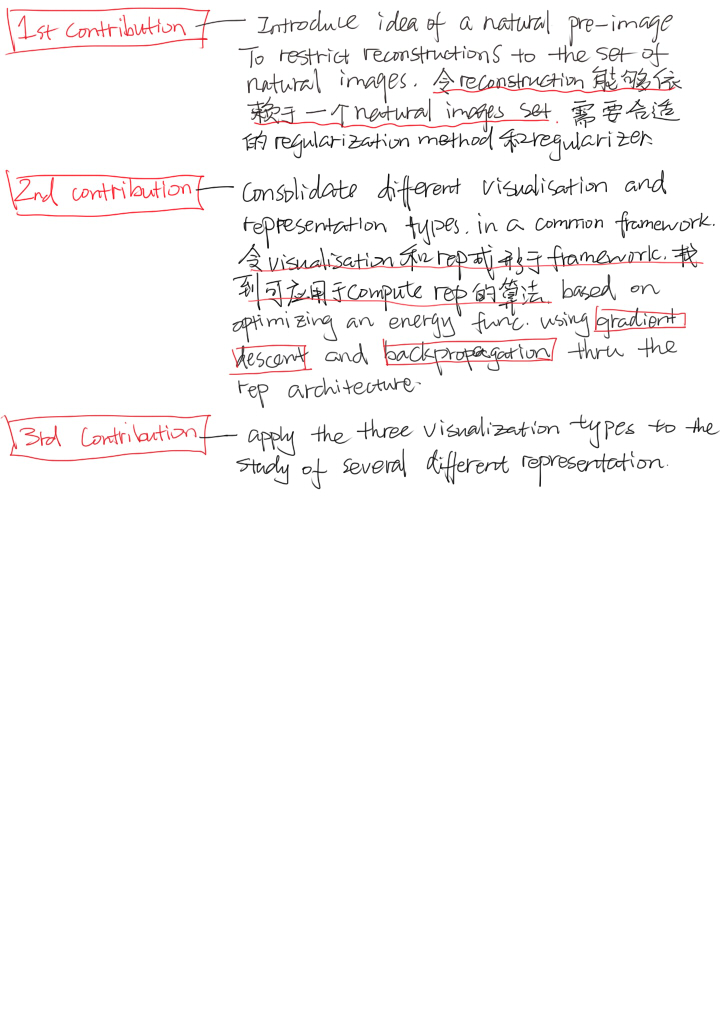 1st contribution — Introduce idea of a natural pre-image
To restrict reconstructions to the set of
natural images. 令reconstruction能够依
赖于一个natural images set. 需要合适
的regularization method和regularizer.
2nd contribution — Consolidate different visualisation and
representation types. in a common framework.
令visualisation和rep成形于framework. 找
到可应用于compute rep的算法 based on
optimizing an energy func. using gradient
descent and backpropagation thru the
rep architecture.
3rd Contribution — apply the three visualization types to the
study of several different representation.